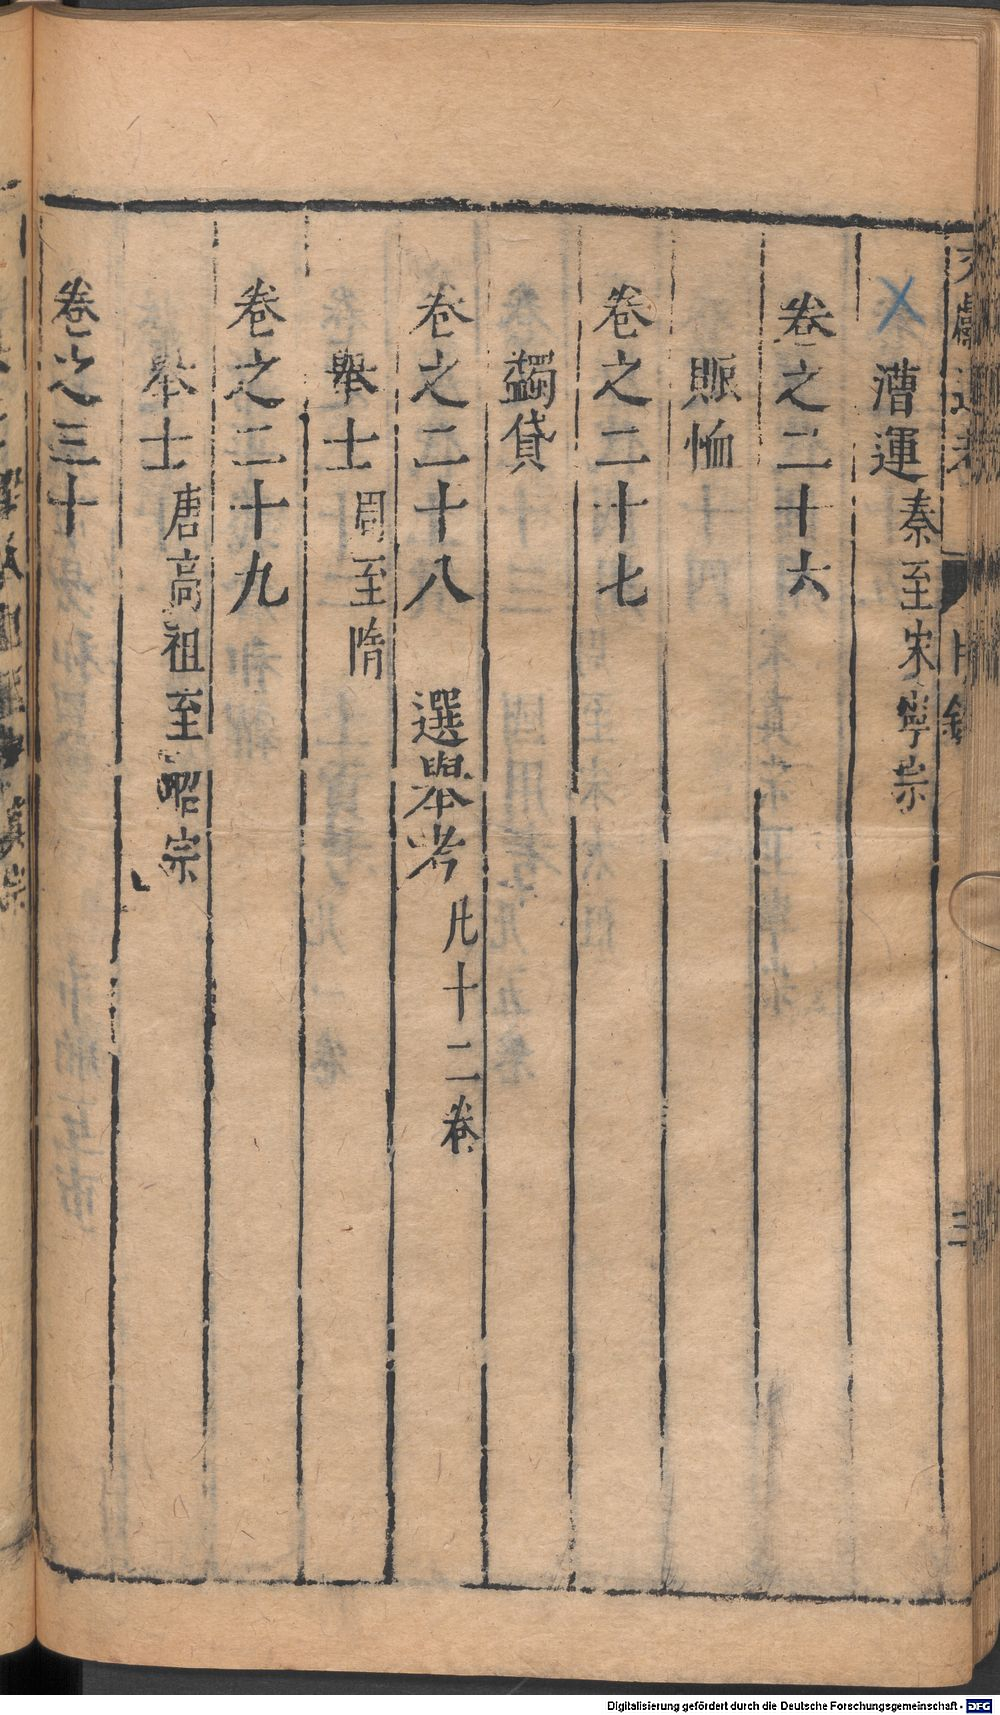 漕運 秦至宋寧宗
卷之二十六
賑恤
卷之二十七
蠲貸
卷之二十八 選舉考 凡十二卷
舉士 周至隋
卷之二十九
舉士 唐高祖至昭宗
卷之三十
三
Digitalisierung gefördert durch die Deutsche Forschungsgemeinschaft - DFG